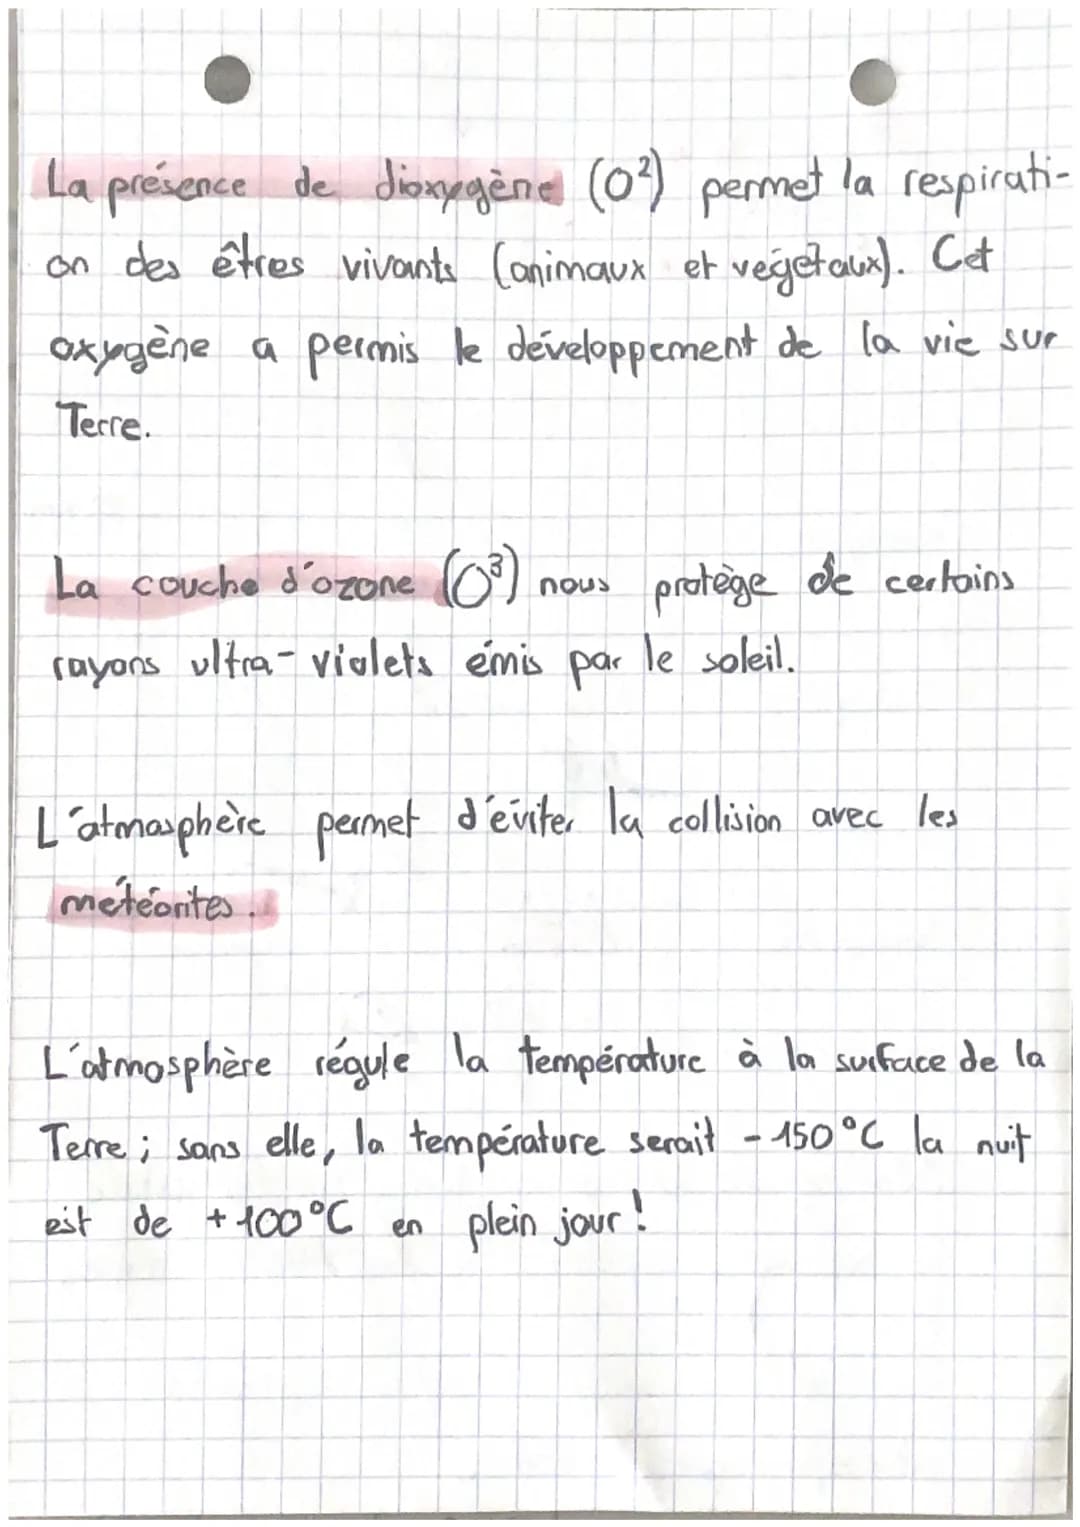 La présence de dioxygène (O²) permet la respirati-
on des êtres vivants (animaux et végétaux). Cet
oxygène a permis le développement de la vie sur
Terre.
La couche d'ozone (O³) nous protège de certains
rayons ultra-violets émis par le soleil.
L'atmosphère permet d'éviter la collision avec les
météorites.
L'atmosphère régule la température à la surface de la
Terre ; sans elle, la température serait -150°C la nuit
est de +100°C en plein jour !